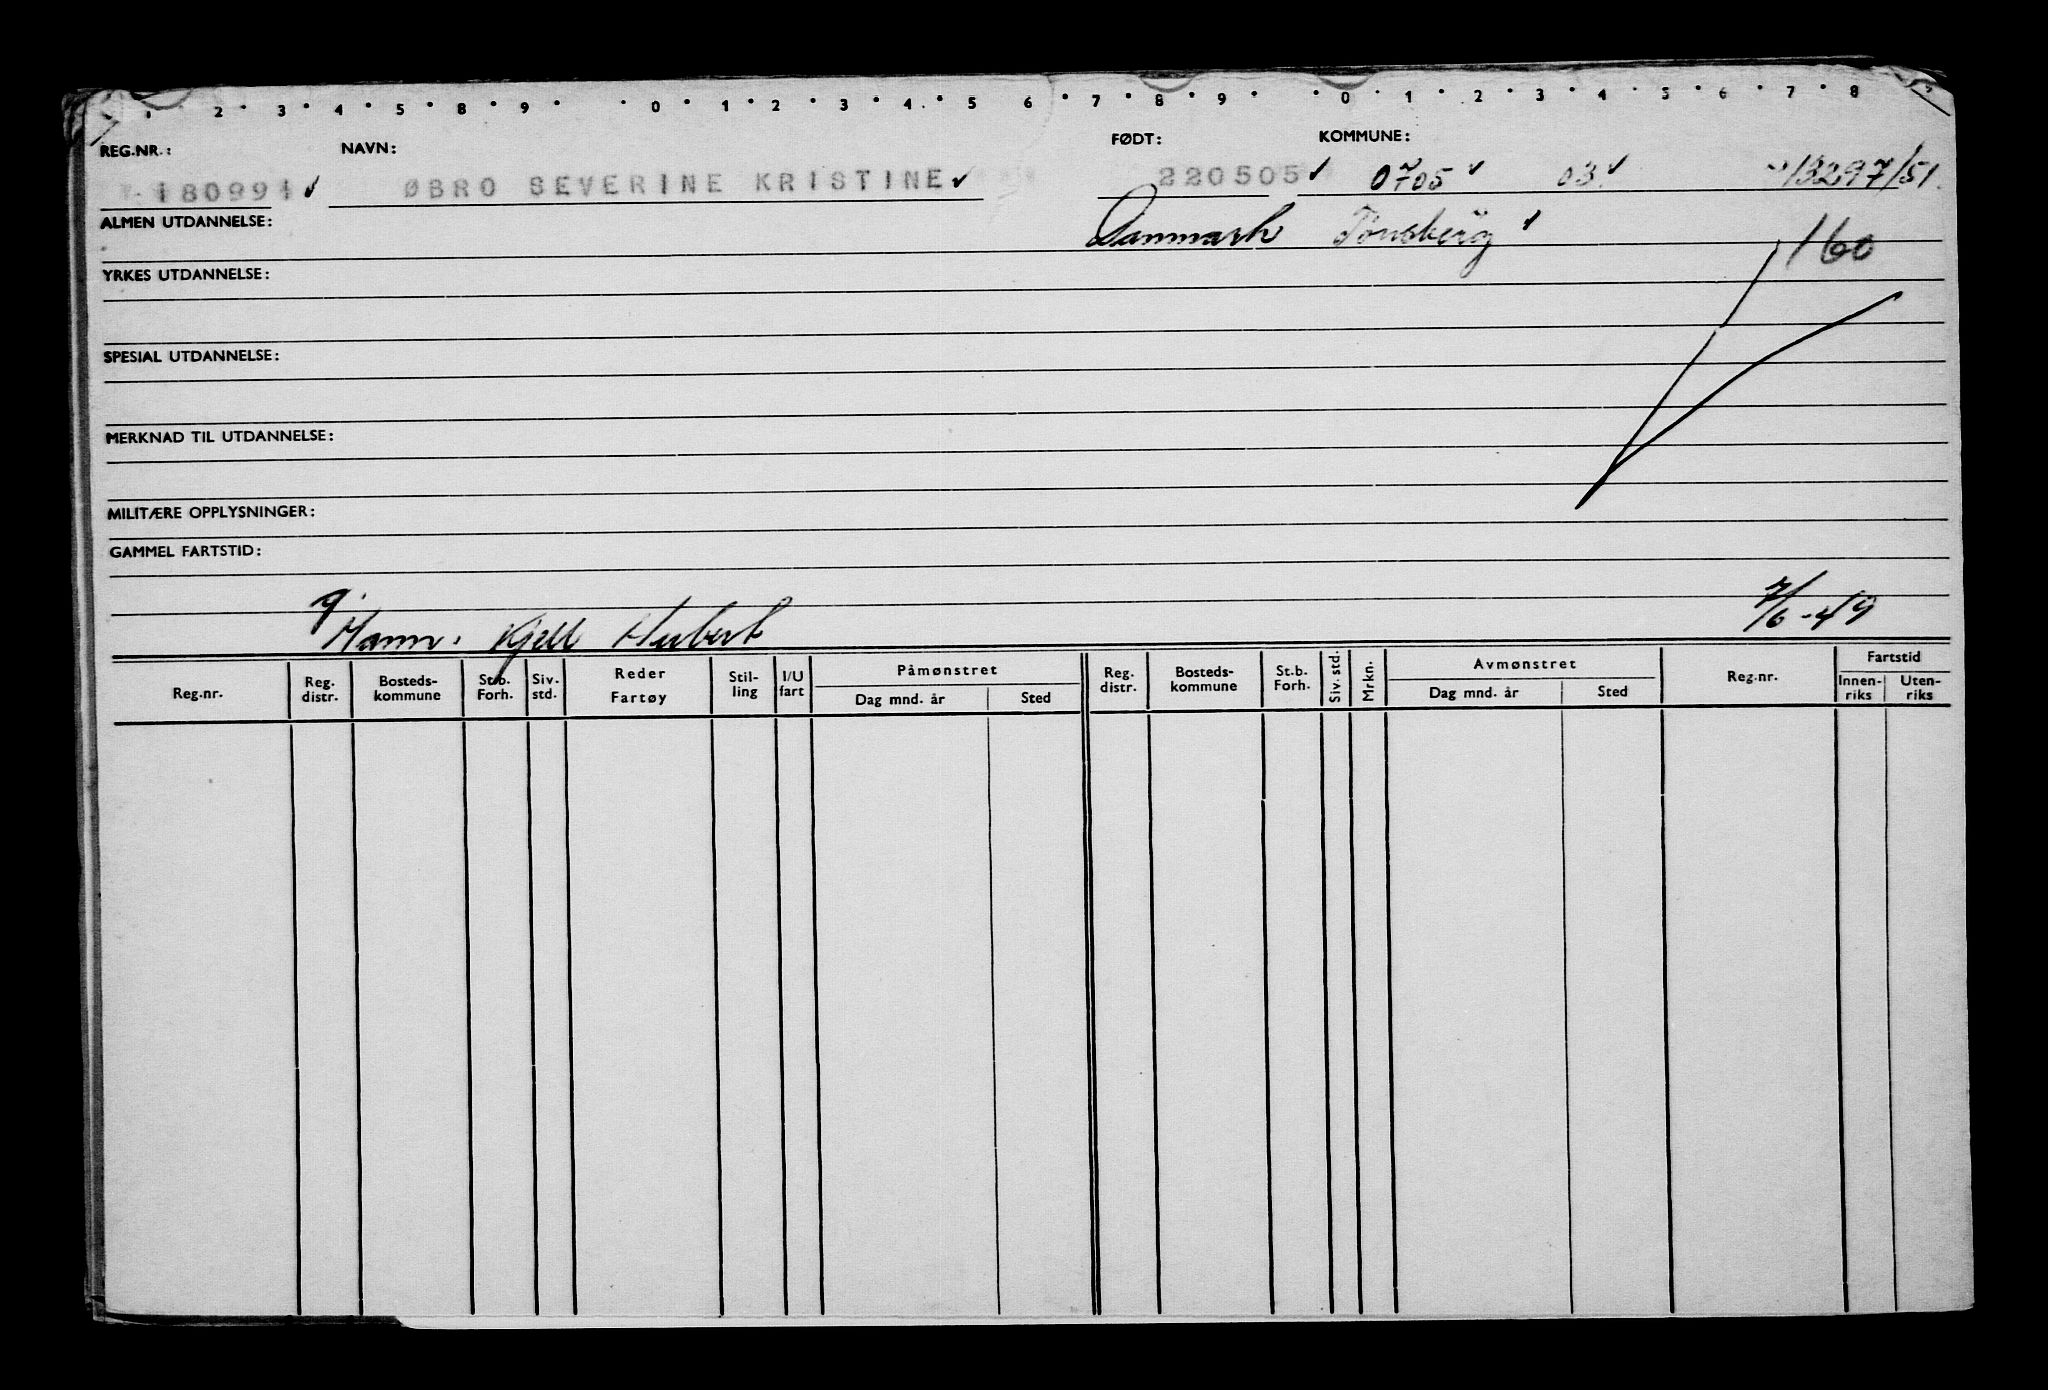 1 2 3 4 5 8 9 0 1 2 3 4 5 6 7 8 9 0 1 2 3 4 5 6 7 8
REG.NR.: NAVN: FØDT: KOMMUNE:
180991 ØBRO SEVERINE KRISTINE 220505 0705 03 13297/51
ALMEN UTDANNELSE: Danmark Tønsberg
160
YRKES UTDANNELSE:
SPESIAL UTDANNELSE:
MERKNAD TIL UTDANNELSE:
MILITÆRE OPPLYSNINGER:
GAMMEL FARTSTID:
g. Mann: Kjell Herbert 7/6-49
Reg.nr. Reg. distr. Bosteds-kommune St.b. Forh. Siv. std. Reder Fartøy Stil-ling I/U fart Påmønstret Dag mnd. år Sted Reg. distr. Bosteds-kommune St.b. Forh. Siv. std. Mrkn. Avmønstret Dag mnd. år Sted Reg.nr. Fartstid Innen-riks Uten-riks